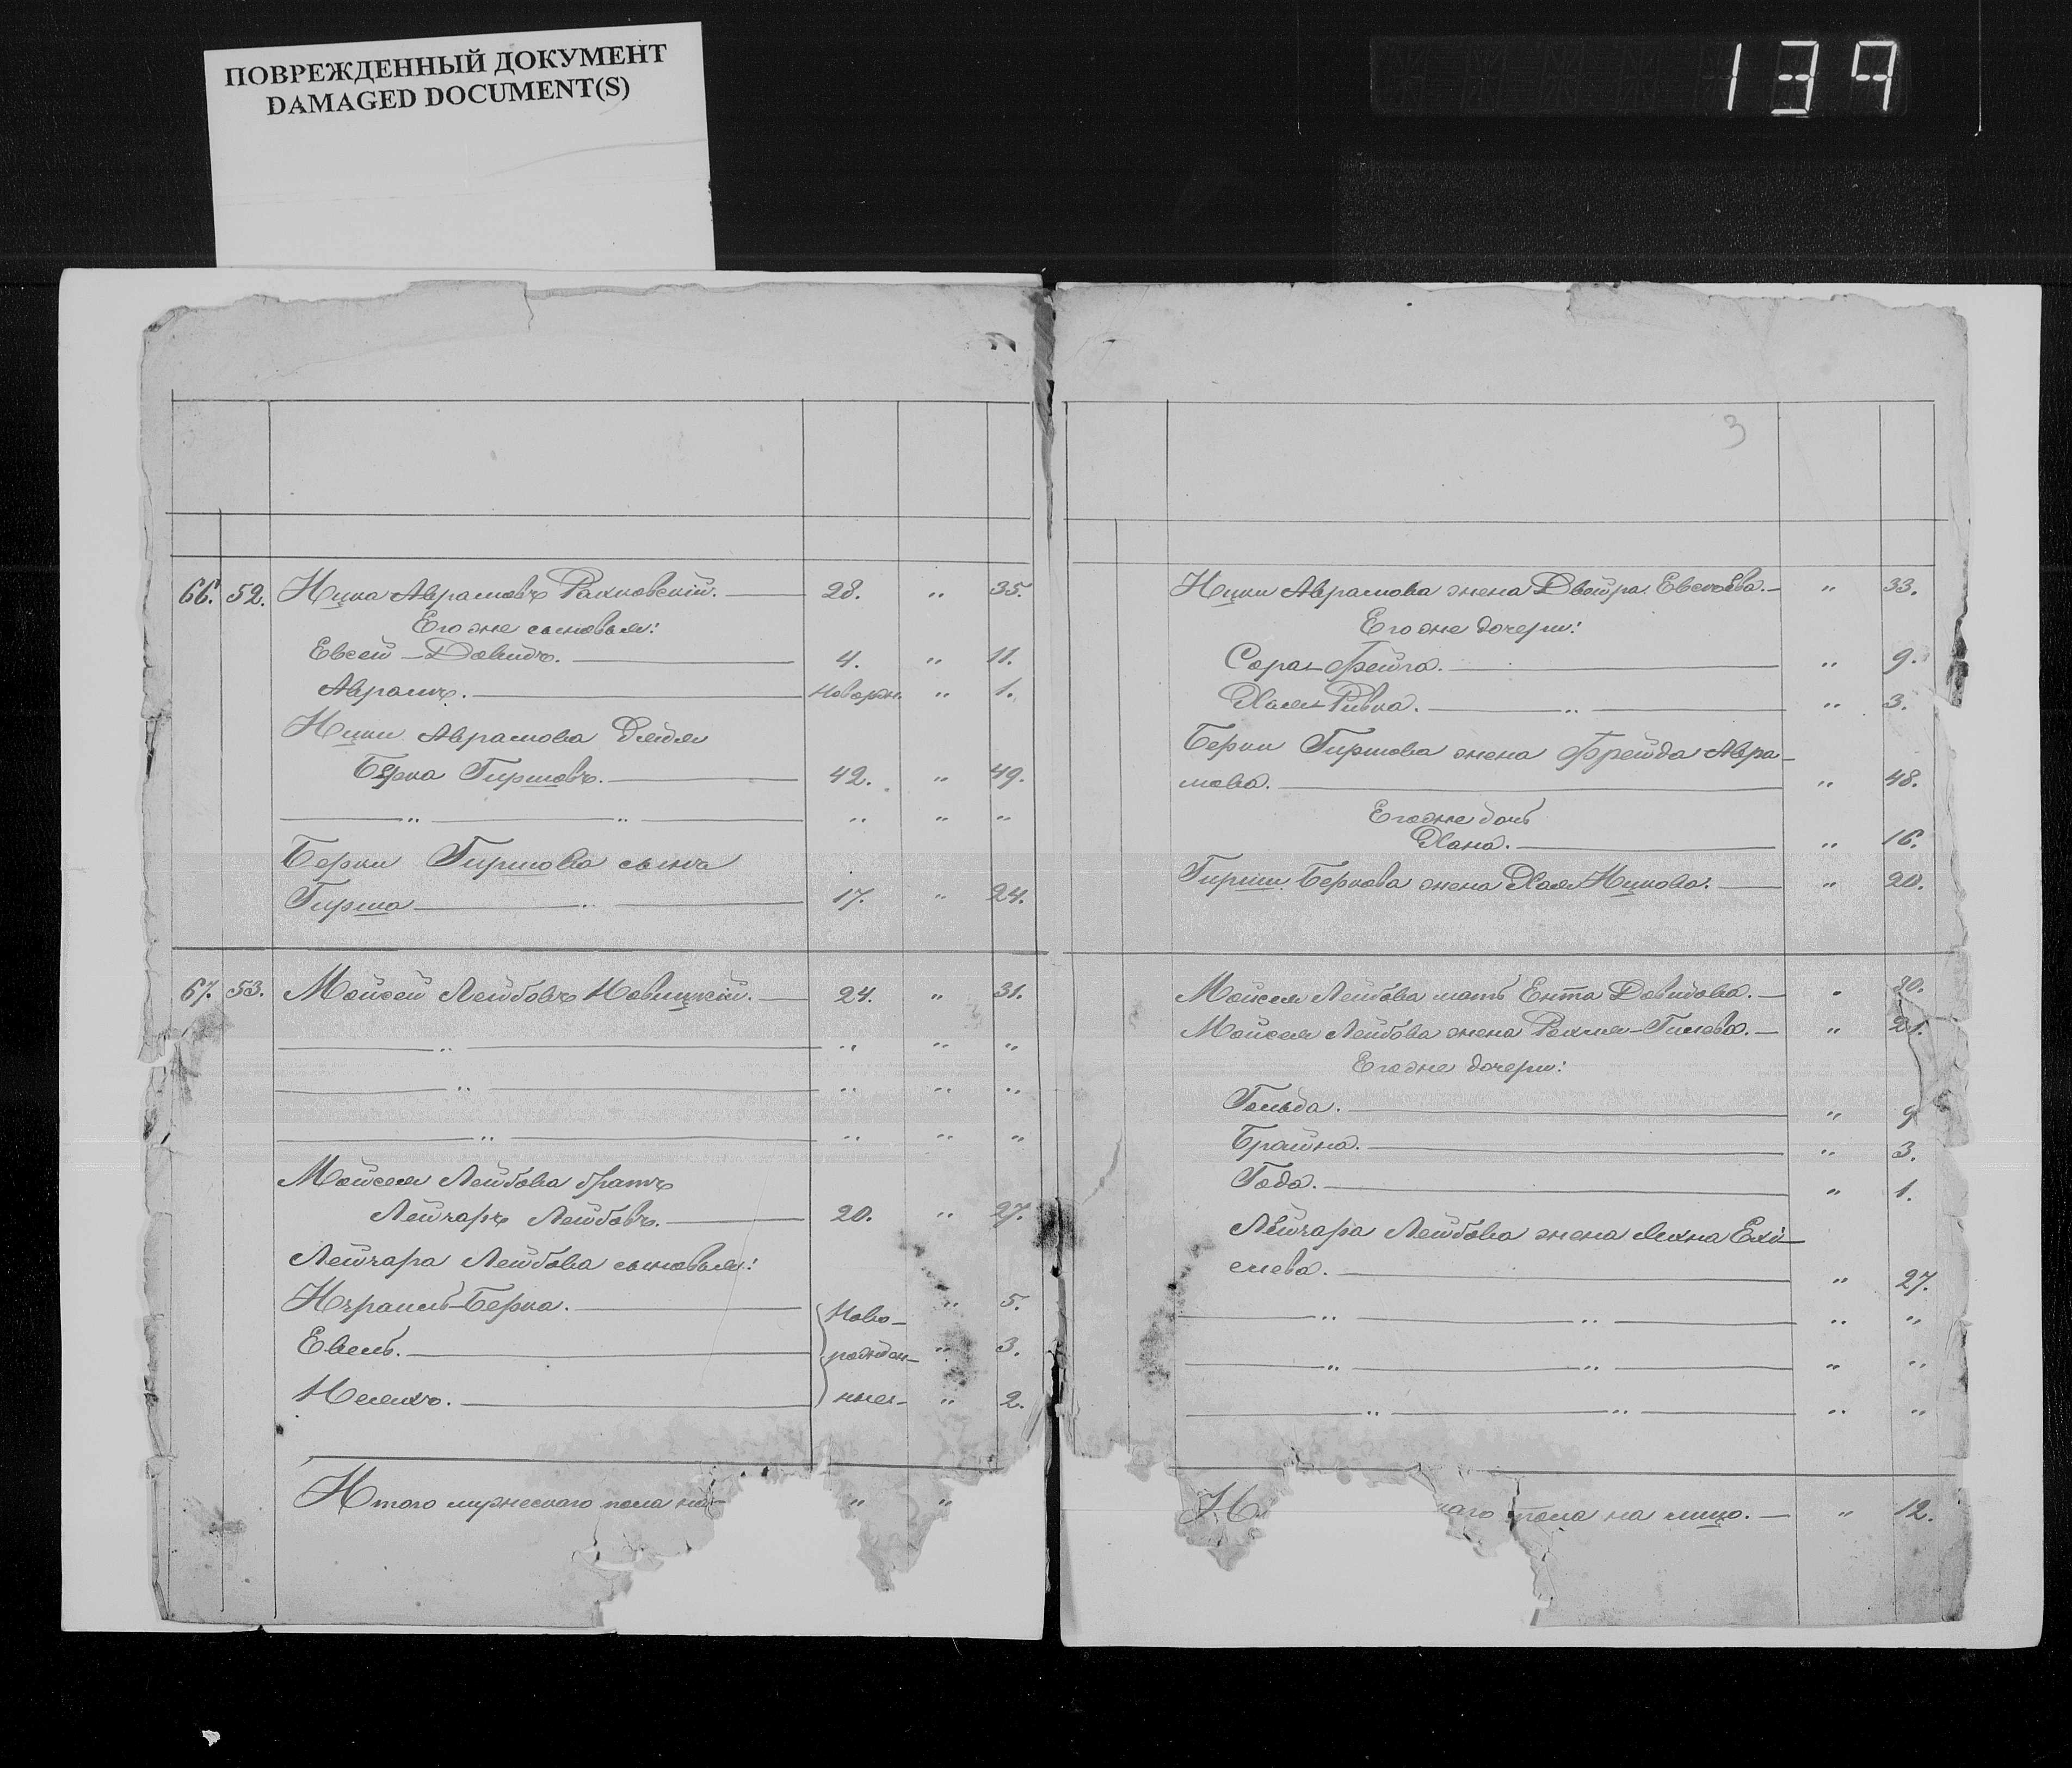 ПОВРЕЖДЕННЫЙ ДОКУМЕНТ
DAMAGED DOCUMENT(S)
139
3
66. 52. Ицка Аврамовъ Рахковскій. — 28. " 35.
Его же сыновья:
Евсей-Довидъ. — 4. " 11.
Аврамъ. — новорж. " 1.
Ицки Аврамова дядя
Берка Гиршовъ. — 42. " 49.
— " — " — " " "
Берки Гиршова сынъ
Гирша — " — 17. " 24.
67. 53. Мойсей Лейбовъ Новицкій. — 24. " 31.
— " — " " "
— " — " " "
— " — " " "
Мойсея Лейбова братъ
Лейзаръ Лейбовъ. — 20. " 27.
Лейзара Лейбова сыновья:
Израиль-Берка. — Ново- " 5.
Евель. — рожден- " 3.
— ные- " 2.
Итого мужескаго пола на " "
Ицки Аврамова жена Двойра Евсеева. — " 33.
Его же дочери:
Сора-Фейга. — " 9.
Хая-Ривка. — " — " 3.
Берки Гиршова жена Фрейда Авра-
мова. — " 48.
Его же дочь
Хана. — " 16.
Гирши Беркова жена Хая Ицкова. — " 20.
Мойсея Лейбова мать Ента Довидова. — "
Мойсея Лейбова жена Рахля-Гилева. — " 21.
Его же дочери:
Гольда. — " 9
Брайна. — " 3.
Года. — " 1.
Лейзара Лейбова жена Ехі-
елева. — " 27.
— " — " — " "
— " — " — " "
— " — " — " "
И аго пола на лицо. — " 12.